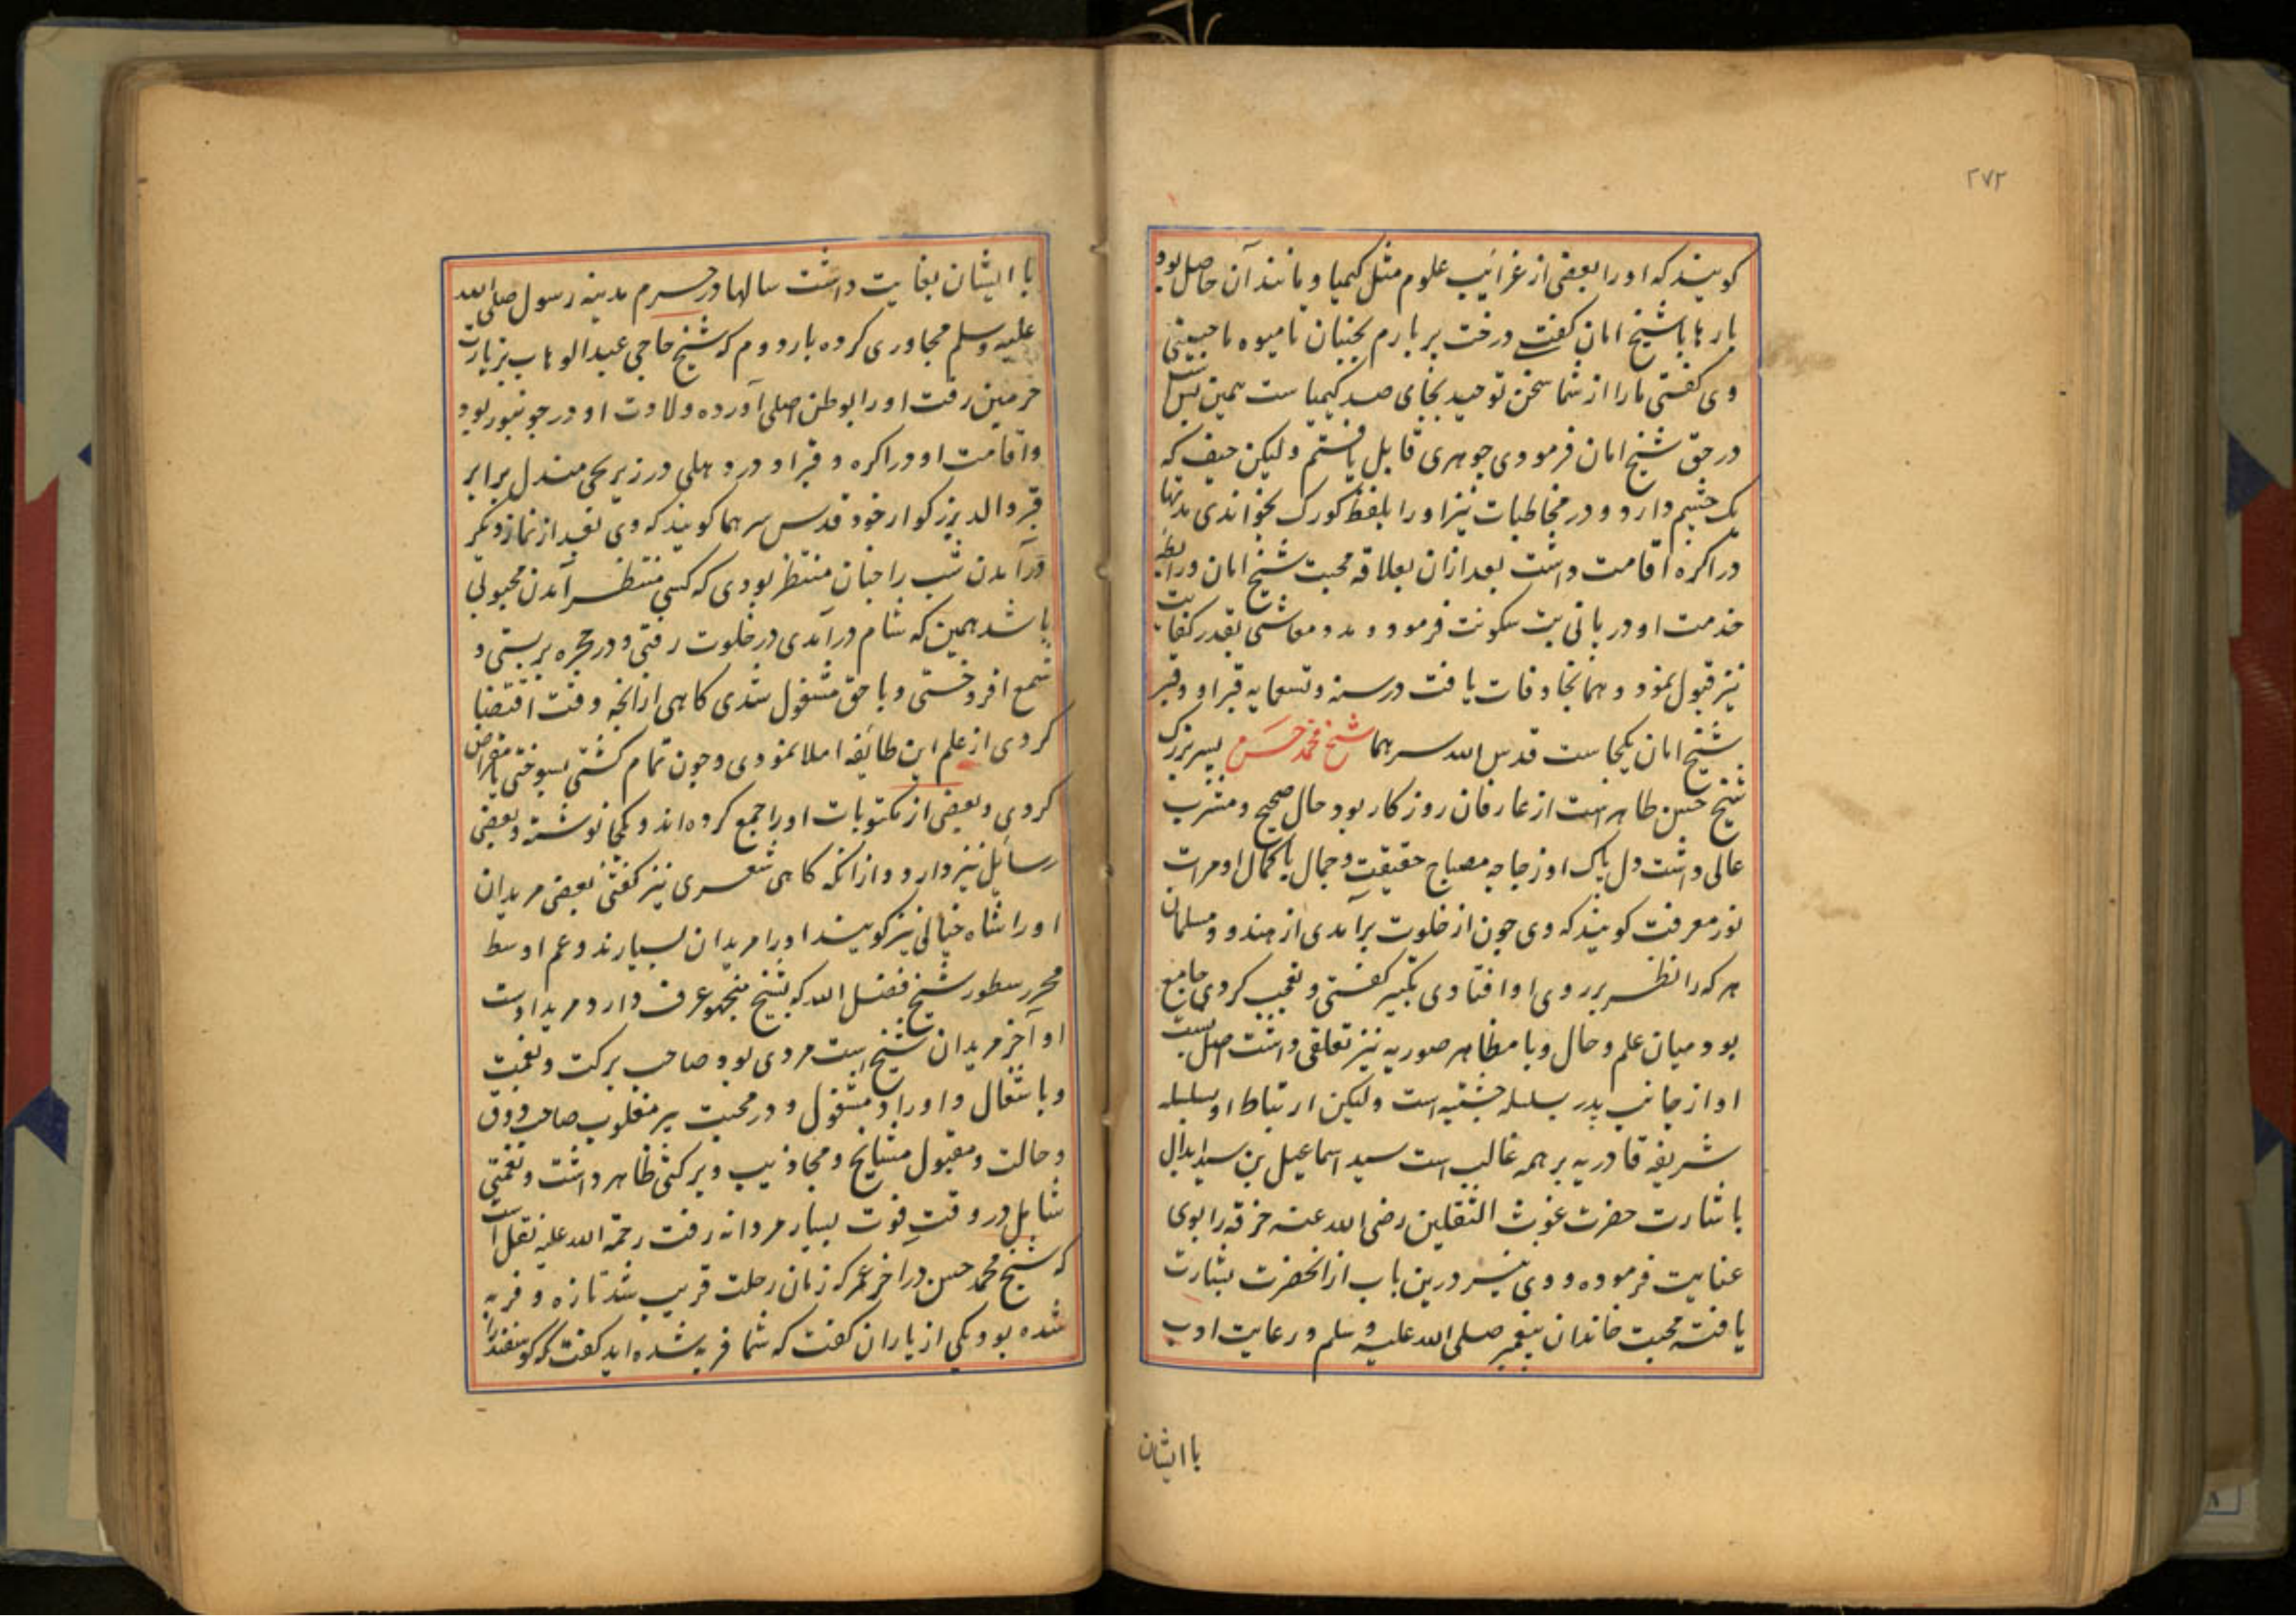 ۲۷۲
کویند که او را بعضی از غرائب علوم مثل کیمیا و مانند آن حاصل بود
بارها با شیخ امان کفتی درخت پر بارم بجنبان تا میوه ها چینی
وی کفتی ما را از شما سخن توحید بجای صد کیمیا ست همین بس
در حق شیخ امان فرمودی جوهری قابل یافتم ولیکن حیف که
یک چشم دارد و در مخاطبات نیز او را بلفظ کورک بخواندی مدتها
در اکره اقامت داشت بعد ازان بعلاقه محبت شیخ امان و رابطه
خدمت او در پانی پت سکونت فرمود و مدد معاشی بقدر کفایت
نیز قبول نمود و همانجا وفات یافت در سنه و تسعمایه قبر او و قبر
شیخ امان یکجا ست قدس الله سرهما شیخ محمد حسن پسر بزرک
شیخ حسن طاهر است از عارفان روزکار بود حال صحیح و مشرب
عالی داشت دل پاک او زجاجه مصباح حقیقت و جمال با کمال او مرات
نور معرفت کویند که وی چون از خلوت برآمدی از هندو و مسلمان
هر که را نظر بر روی او افتادی تکبیر کفتی و تعجب کردی جامع
بود میان علم و حال و با مظاهر صوریه نیز تعلقی داشت اصل نسبت
او از جانب پدر بسلسله چشتیه است ولیکن ارتباط او بسلسله
شریفه قادریه بر همه غالب است سید اسماعیل بن سید ابدال
باشارت حضرت غوث الثقلین رضی الله عنه خرقه را بوی
عنایت فرموده و وی نیز درین باب از انحضرت بشارت
یافته محبت خاندان پیغمبر صلی الله علیه وسلم و رعایت ادب
با ایشان
با ایشان بغایت داشت سالها در حرم مدینه رسول صلی الله
علیه وسلم مجاوری کرده بار دوم که شیخ حاجی عبد الوهاب بزیارت
حرمین رفت او را بوطن اصلی آورده ولادت او در جونپور بود
و اقامت او در اکره و قبر او در دهلی در زیر بجی مندل برابر
قبر والد بزرکوار خود قدس سرهما کویند که وی بعد از نماز دیکر
درآمدن شب را چنان منتظر بودی که کسی منتظر آمدن محبوبی
باشد همین که شام درآمدی در خلوت رفتی و در حجره بر بستی و
شمع افروختی و با حق مشغول شدی کاهی ازانچه وقت اقتضا
کردی از علم این طائفه املا نمودی و چون تمام کشتی بسوختی یا مقراض
کردی و بعضی از مکتوبات او را جمع کرده اند و یکجا نوشته و بعضی
رسایل نیز دارد و ازانکه کاهی شعری نیز کفتی بعضی مریدان
او را شاه خیالی نیز کویند او را مریدان بسیارند و عم اوسط
محرر سطور شیخ فضل الله که بشیخ منجهو عرف دارد مرید اوست
او آخر مریدان شیخ است مردی بود صاحب برکت و نعمت
و باشغال و اوراد مشغول و در محبت پیر مغلوب صاحب ذوق
و حالت و مقبول مشایخ و مجاذیب و برکتی ظاهر داشت و نعمتی
شامل در وقت فوت بسیار مردانه رفت رحمة الله علیه نقل است
که شیخ محمد حسن در آخر عمر که زمان رحلت قریب شد تازه و فربه
شده بود یکی از یاران کفت که شما فربه شده اید کفت که کوسفند را